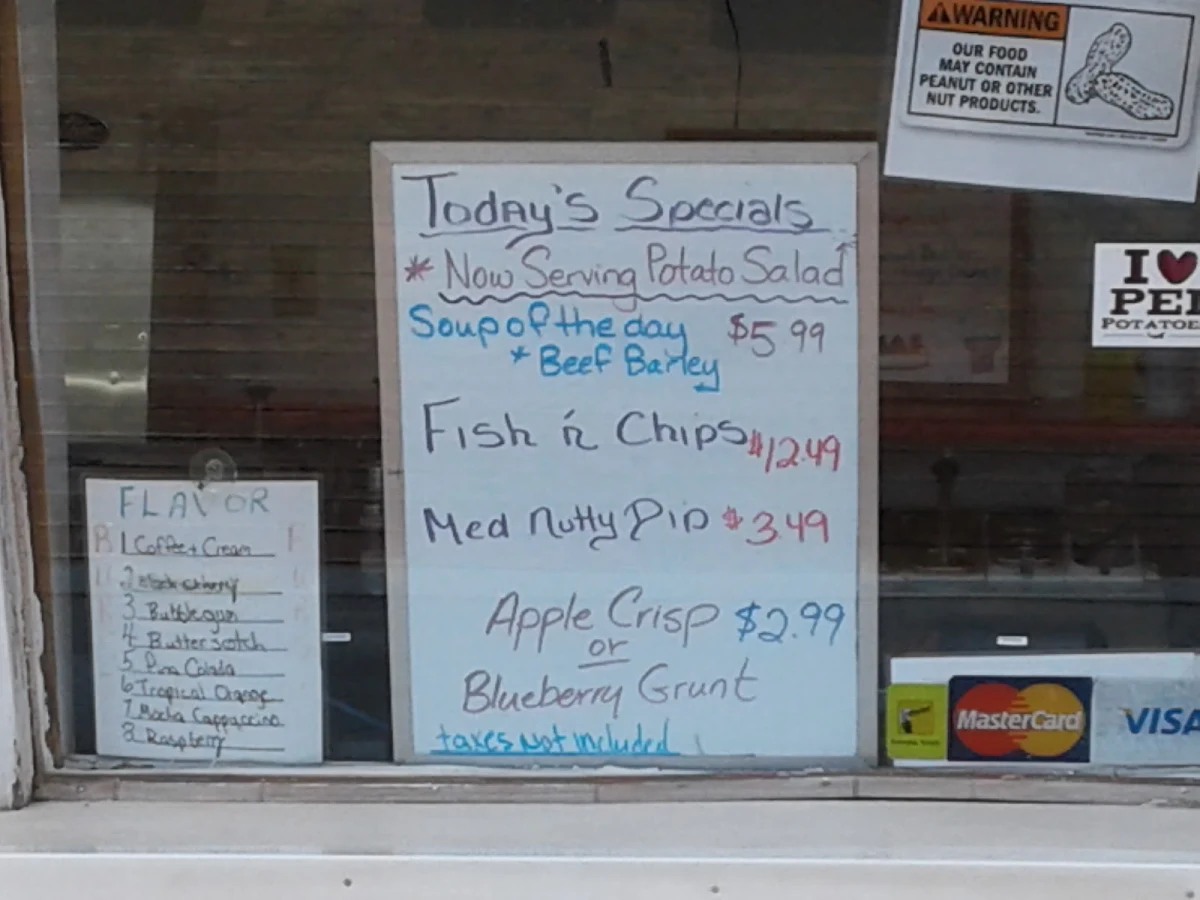 WARNING
OUR FOOD
MAY CONTAIN
PEANUT OR OTHER
NUT PRODUCTS.
Today's Specials
* Now Serving Potato Salad
Soup of the day $5.99
* Beef Barley
Fish 'n Chips $12.49
Med Nutty Dip $3.49
Apple Crisp $2.99
or
Blueberry Grunt
taxes not included
FLAVOR
1 Coffee + Cream
2 Black cherry
3 Bubblegum
4 Butterscotch
5 Pina Colada
6 Tropical Orange
7 Mocha Cappuccino
8 Raspberry
I ♥
PEI
POTATOE
MasterCard
VISA